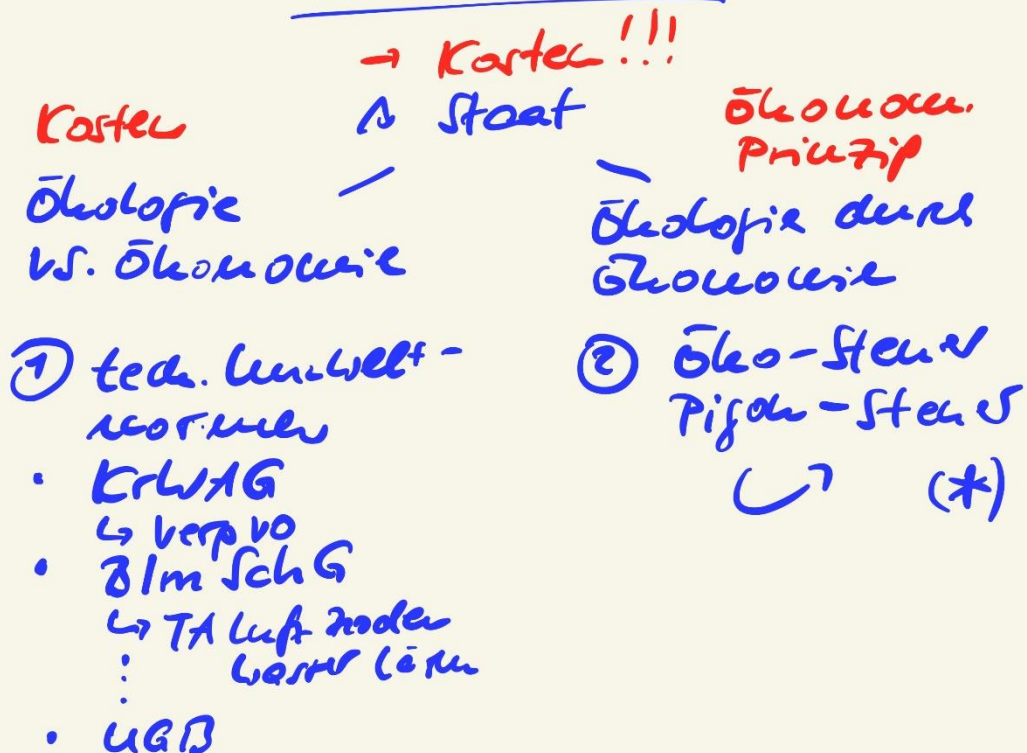 → Kosten!!!
Kosten
Staat
Ökonom.
Prinzip
Ökologie
vs. Ökonomie
Ökologie durch
Ökonomie
① tech. Umwelt-
normen
• KrW/AG
↳ VerpVO
• BImSchG
↳ TA Luft Boden
Wasser Lärm
⋮
• UGB
② Öko-Steuer
Pigou-Steuer
(*)